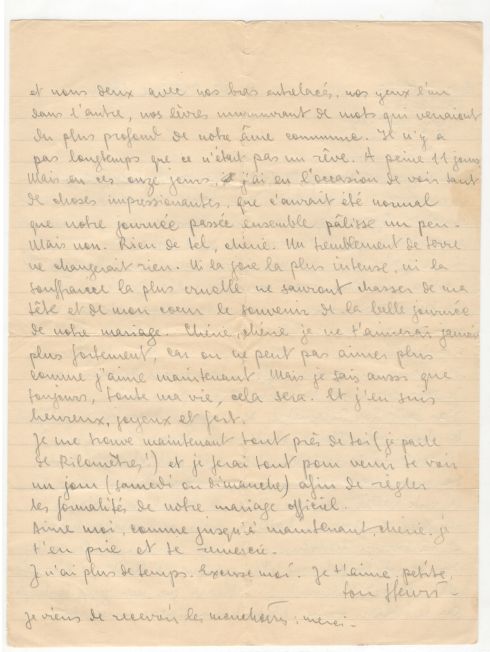 et nous deux avec nos bras entrelacés, nos yeux l'un
dans l'autre, nos lèvres murmurant de mots qui venaient
du plus profond de notre âme commune. Il n'y a
pas longtemps que ce n'était pas un rêve. A peine 11 jours
Mais en ces onze jours, j'ai eu l'occasion de voir tant
de choses impressionantes, que ç'aurait été normal
que notre journée passée ensemble pâlisse un peu.
Mais non. Rien de tel, chérie. Un tremblement de terre
ne changerait rien. Ni la joie la plus intense, ni la
souffrance la plus cruelle ne sauront chasser de ma
tête et de mon coeur le souvenir de la belle journée
de notre mariage. Chérie, chérie je ne t'aimerai jamais
plus fortement, car on ne peut pas aimer plus
comme j'aime maintenant. Mais je sais aussi que
toujours, toute ma vie, cela sera. Et j'en suis
heureux, joyeux et fort.
Je me trouve maintenant tout près de toi (je parle
de Kilomètres!) et je ferai tout pour venir te voir
un jour (samedi ou dimanche) afin de régler
les formalités de notre mariage officiel.
Aime moi, comme jusqu'à maintenant, chérie. je
t'en prie et te remercie.
Je n'ai plus de temps. Excuse moi. Je t'aime, petite,
ton Henri -
Je viens de recevoir les mouchoirs : merci -